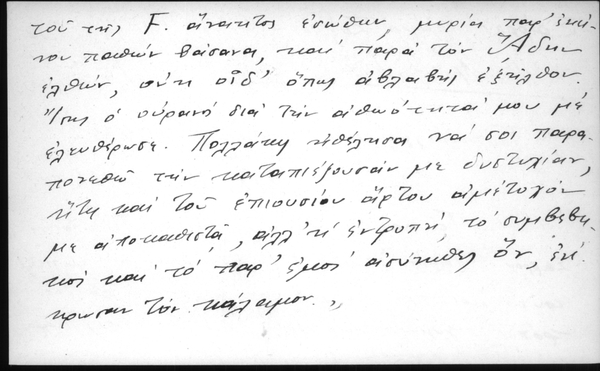 τοῦ τῆς F. ἄνακτος ἐσώθην, μυρία παρ' ἐκεί-
νου παθὼν βάσανα, καὶ παρὰ τὸν Ἅδην
ἐλθών, οὐκ οἶδ' ὅπως ἀβλαβὴς ἐξῆλθον.
Ἴσως ὁ οὐρανὸς διὰ τὴν ἀθωότητά μου μὲ
ἐλευθέρωσε. Πολλάκις ἠθέλησα νά σοι παρα-
πονεθῶ τὴν καταπιέζουσάν με δυστυχίαν,
ἥτις καὶ τοῦ ἐπιουσίου ἄρτου ἀμέτοχον
με ἀποκαθιστᾷ, ἀλλ' ἡ ἐντροπή, τὸ συμβεβη-
κὸς καὶ τὸ παρ' ἐμοὶ ἀσύνηθες ὄν, ἐνέ-
κρωσαν τὸν κάλαμον. „